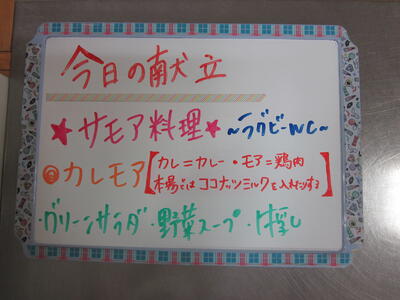 今日の献立
★サモア料理★ ~ラグビーWC~
◎カレモア[カレ=カレー・モア=鶏肉
本場ではココナッツミルクを入れたりする]
・グリーンサラダ ・野菜スープ ・汁